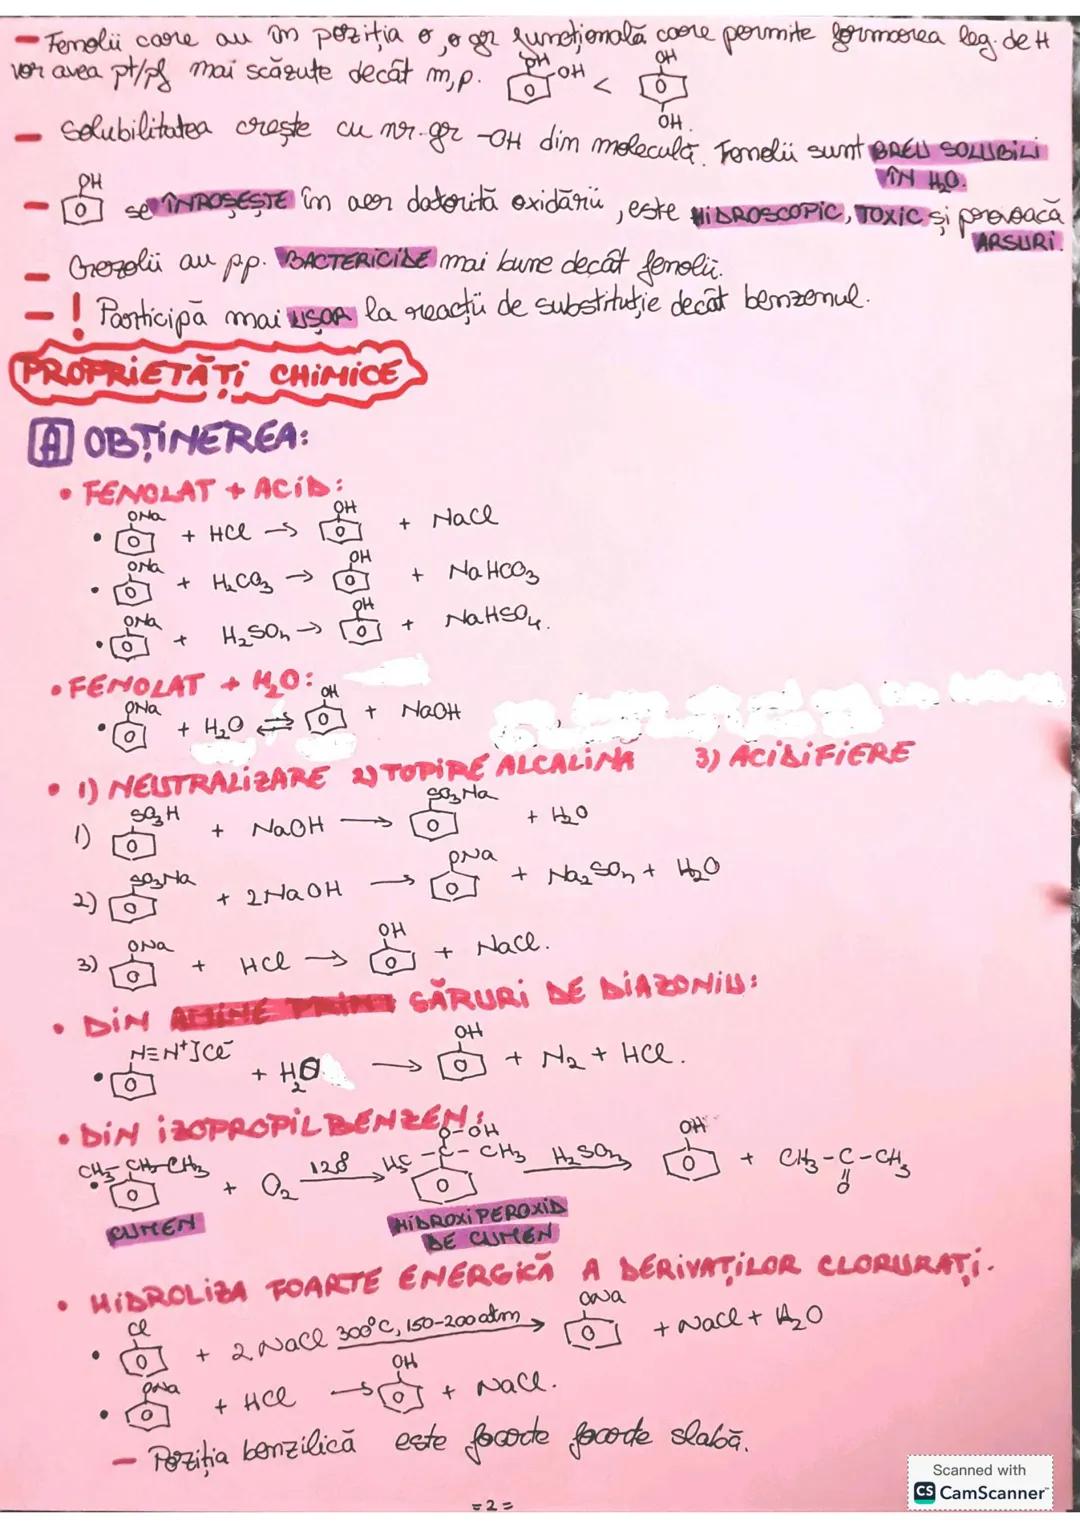 - Fenolii care au în poziția o, o gr funcțională care permite formarea leg. de H
vor avea pt/pf mai scăzute decât m,p. OH OH < OH OH
- Solubilitatea crește cu nr. gr -OH din moleculă. Fenolii sunt GREU SOLUBILI
ÎN H₂O.
- OH se ÎNROȘEȘTE în aer datorită oxidării, este HIDROSCOPIC, TOXIC și provoacă
ARSURI.
- Crezolii au pp. BACTERICIDE mai bune decât fenolii.
- ! Participă mai UȘOR la reacții de substituție decât benzenul.
PROPRIETĂȚI CHIMICE
A OBȚINEREA:
• FENOLAT + ACID:
• ONa + HCl → OH + NaCl
• ONa + H₂CO₃ → OH + NaHCO₃
• ONa + H₂SO₄ → OH + NaHSO₄.
• FENOLAT + H₂O:
• ONa + H₂O ⇌ OH + NaOH
• 1) NEUTRALIZARE 2) TOPIRE ALCALINA 3) ACIDIFIERE
1) SO₃H + NaOH → SO₃Na + H₂O
2) SO₃Na + 2NaOH → ONa + Na₂SO₄ + H₂O
3) ONa + HCl → OH + NaCl.
• DIN SĂRURI DE DIAZONIU:
• N≡N⁺]Cl⁻ + H₂O → OH + N₂ + HCl.
• DIN IZOPROPILBENZEN:
• CH₃-CH-CH₃ + O₂ 120° → O-OH H₃C-C-CH₃ H₂SO₄ → OH + CH₃-C-CH₃ O
CUMEN HIDROXIPEROXID
DE CUMEN
• HIDROLIZA FOARTE ENERGICĂ A DERIVAȚILOR CLORURAȚI.
• Cl + 2 NaCl 300°C, 150-200 atm → ONa + NaCl + H₂O
• ONa + HCl → OH + NaCl.
- Poziția benzilică este foarte foarte slabă.
=2=
Scanned with
CS CamScanner